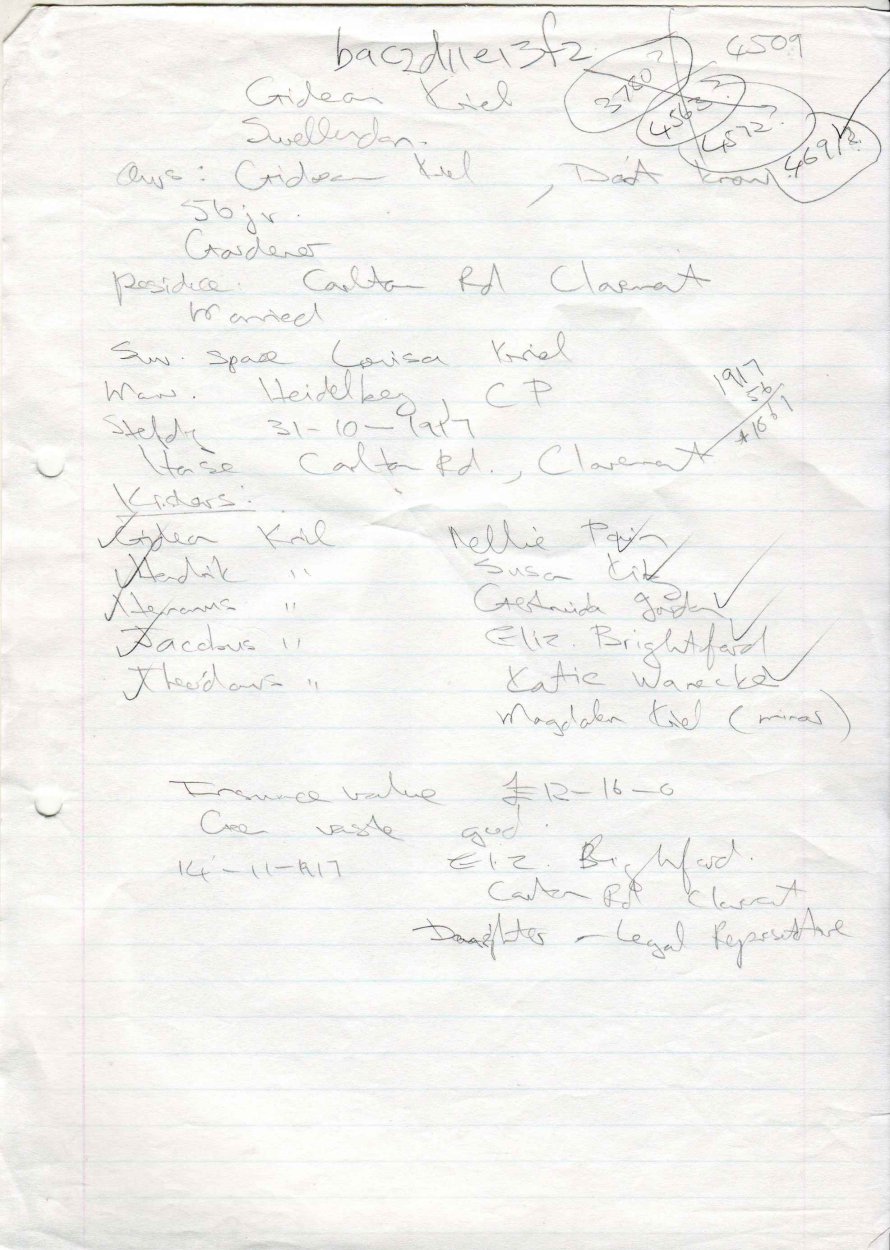 bac2d11e13f2
4509
3780?
4563?
4572?
4691?
Gideon Kriel
Swellendam.
Ouers: Gideon Kriel, Don't know
56 jr.
Gardener
Residence: Carlton Rd Claremont
Married
Surv. spouse Louisa Kriel
Marr. Heidelberg, C P
Sterfdg 31-10-1917
1917
56
*1861
Huise Carlton Rd., Claremont
Kinders:
Gideon Kriel Nellie
Hendrik " Susan
Hermanus " Gertruida Jordan
Jacobus " Eliz. Brightford
Theodorus " Katie Warecke
Magdalen Kriel (minor)
Insurance value £12-16-0
Geen vaste goed.
14-11-1917 Eliz. Brightford.
Carlton Rd Claremont
Daughter - Legal Representative